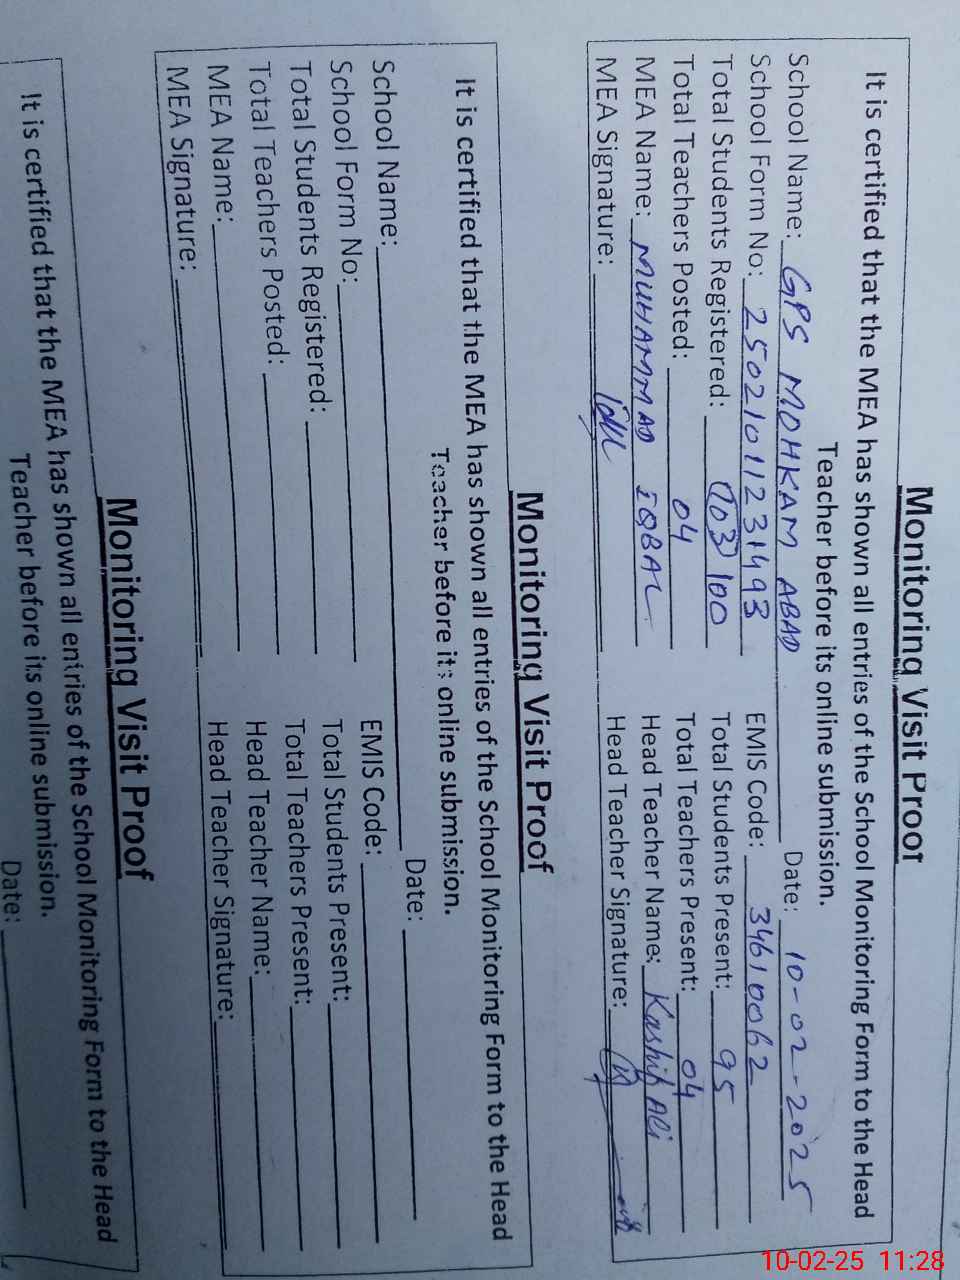 Monitoring Visit Proof
It is certified that the MEA has shown all entries of the School Monitoring Form to the Head
Teacher before its online submission.
School Name: GPS MOHKAM ABAD Date: 10-02-2025
School Form No: 25021011231493 EMIS Code: 34610062
Total Students Registered: 103 100 Total Students Present: 95
Total Teachers Posted: 04 Total Teachers Present: 04
MEA Name: MUHAMMAD IQBAL Head Teacher Name: Kashif Ali
MEA Signature: Head Teacher Signature:
Monitoring Visit Proof
It is certified that the MEA has shown all entries of the School Monitoring Form to the Head
Teacher before its online submission.
School Name: Date:
School Form No: EMIS Code:
Total Students Registered: Total Students Present:
Total Teachers Posted: Total Teachers Present:
MEA Name: Head Teacher Name:
MEA Signature: Head Teacher Signature:
Monitoring Visit Proof
It is certified that the MEA has shown all entries of the School Monitoring Form to the Head
Teacher before its online submission.
Date:
10-02-25 11:28